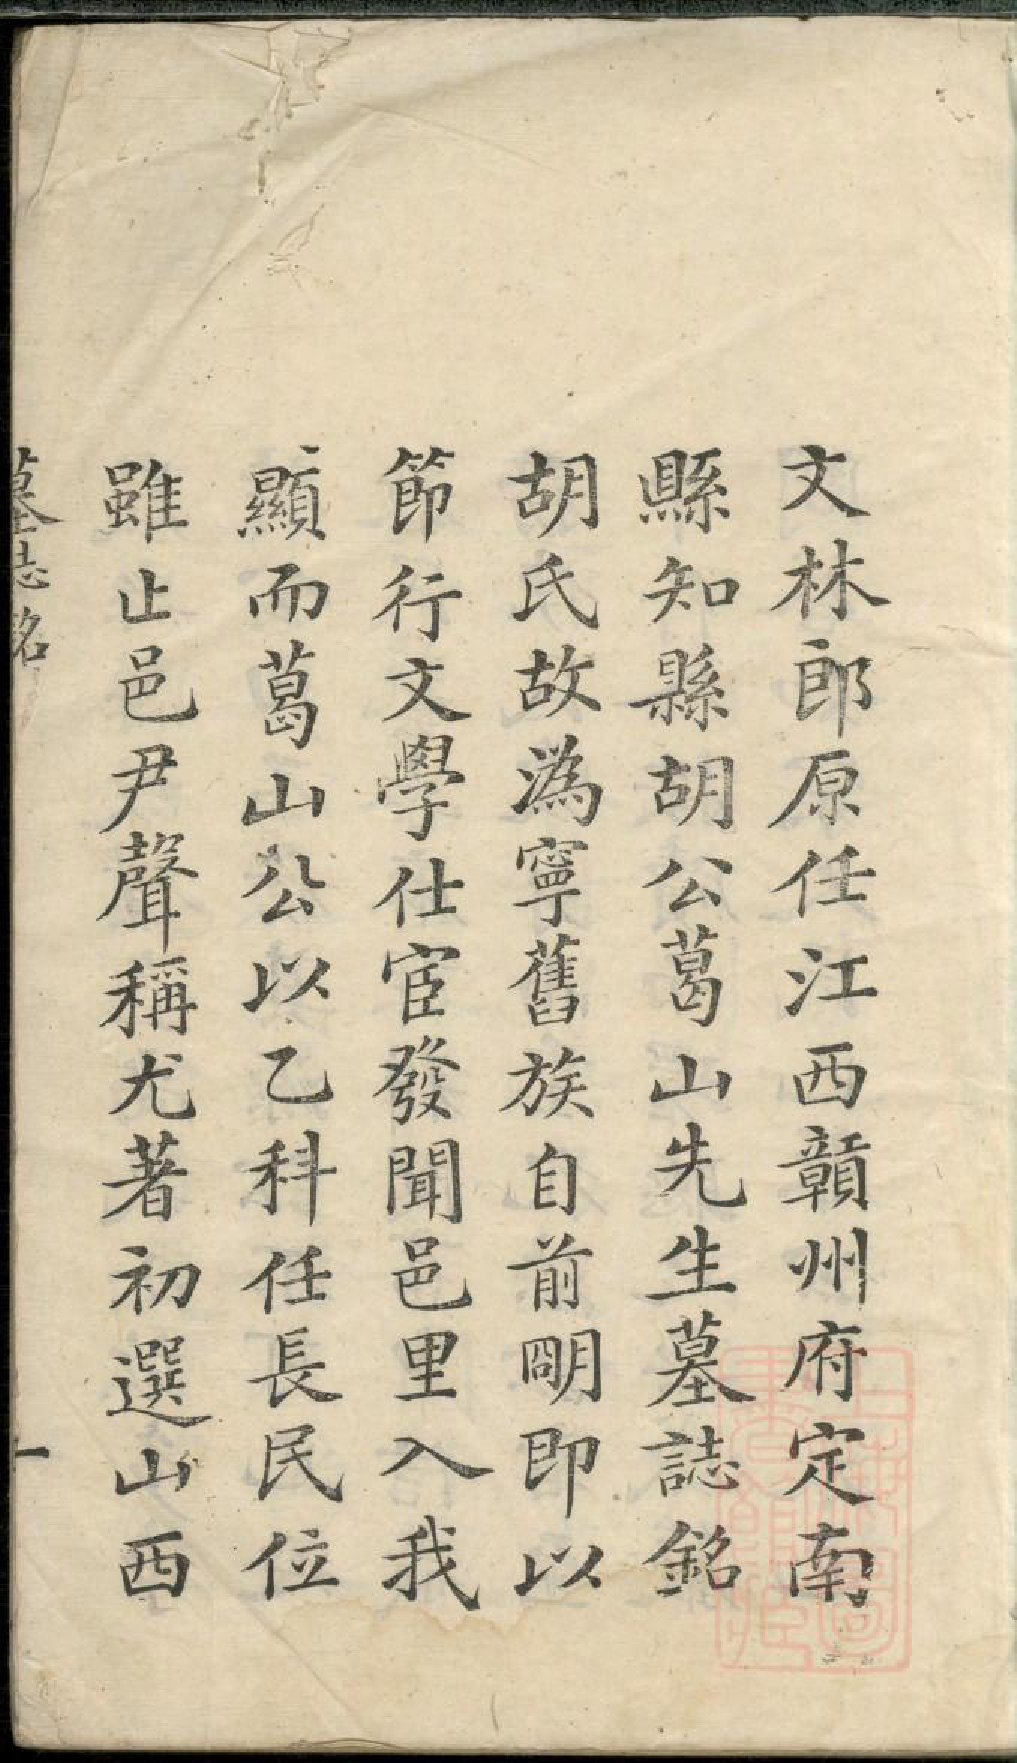 文林郎原任江西贑州府定南
縣知縣胡公葛山先生墓誌銘
胡氏故溈寧舊族自前朙即以
節行文學仕宦發聞邑里入我
顯而葛山公以乙科任長民位
雖止邑尹聲稱尤著初選山西
墓志銘
一
上海圖書館藏